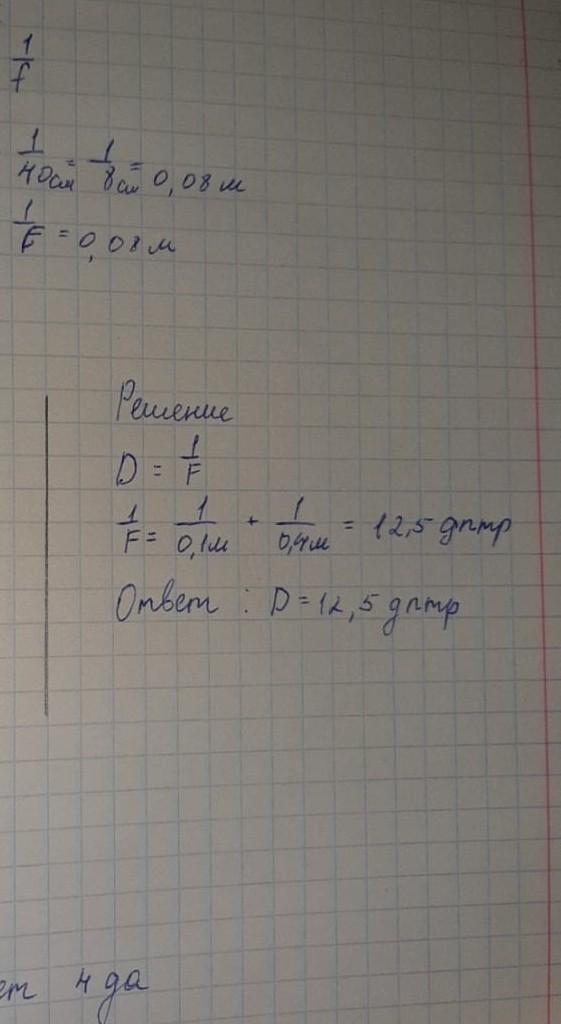 1/f
1/40см = 1/8см = 0,08 м
1/F = 0,08 м
Решение
D = 1/F
1/F = 1/0,1м + 1/0,4м = 12,5 дптр
Ответ : D = 12,5 дптр
ет 4 да